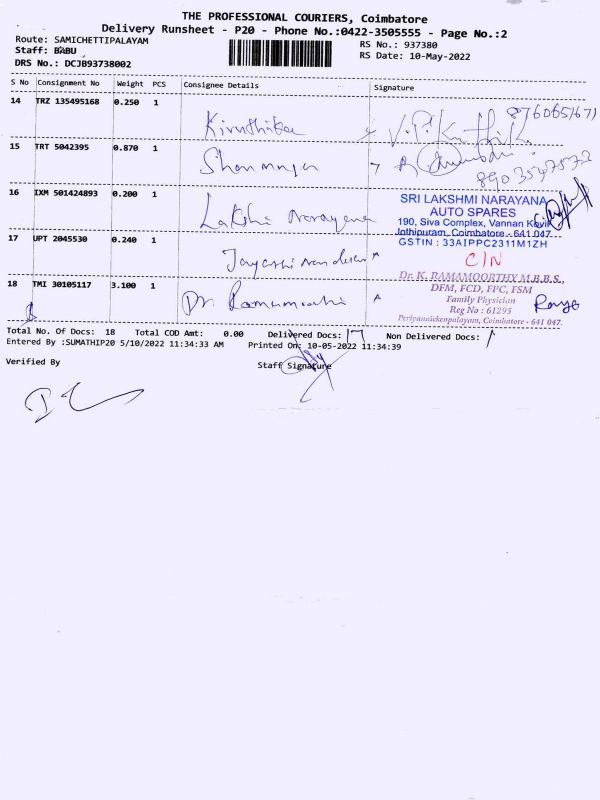 THE PROFESSIONAL COURIERS, Coimbatore
Delivery Runsheet - P20 - Phone No.:0422-3505555 - Page No.:2
Route: SAMICHETTIPALAYAM
RS No.: 937380
Staff: BABU
RS Date: 10-May-2022
DRS No.: DCJB93738002
S No Consignment No Weight PCS Consignee Details Signature
14 TRZ 135495168 0.250 1 Kiruthika
15 TRT 5042395 0.870 1
8903547572
16 IXM 501424893 0.200 1 Lakshi Narayana
SRI LAKSHMI NARAYANA
AUTO SPARES
190, Siva Complex, Vannan Kovil
Jothipuram, Coimbatore - 641 047.
GSTIN : 33AIPPC2311M1ZH
17 UPT 2045530 0.240 1
C/N
18 TMI 30105117 3.100 1 Dr. Ramamoorthi
Dr. K. RAMAMOORTHY M.B.B.S.,
DFM, FCD, FPC, FSM
Family Physician
Reg No : 61295
Periyanaickenpalayam, Coimbatore - 641 047.
Total No. Of Docs: 18 Total COD Amt: 0.00 Delivered Docs: 17 Non Delivered Docs: 1
Entered By :SUMATHIP20 5/10/2022 11:34:33 AM Printed On: 10-05-2022 11:34:39
Verified By
Staff Signature